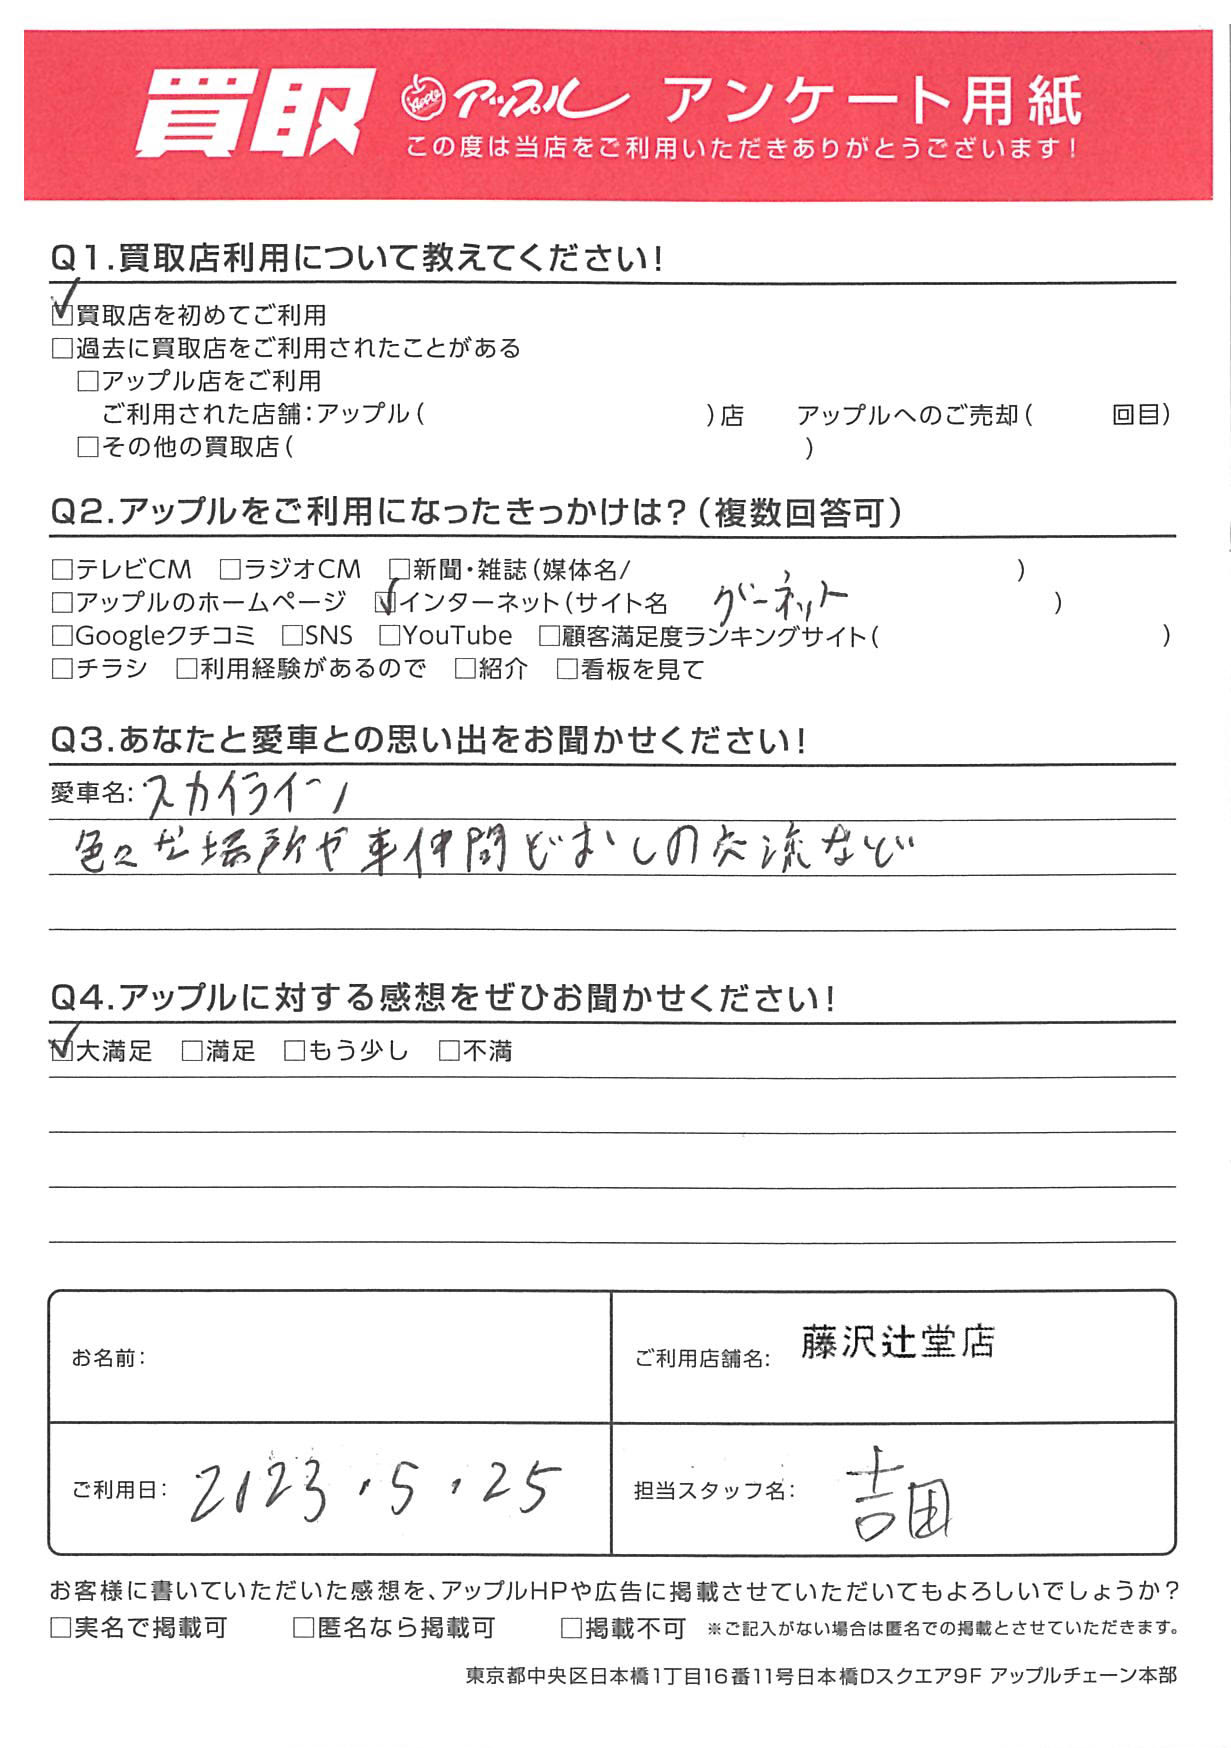 買取 Apple アップル アンケート用紙
この度は当店をご利用いただきありがとうございます！
Q1.買取店利用について教えてください！
☑買取店を初めてご利用
□過去に買取店をご利用されたことがある
□アップル店をご利用
ご利用された店舗：アップル（ ）店 アップルへのご売却（ 回目）
□その他の買取店（ ）
Q2.アップルをご利用になったきっかけは？（複数回答可）
□テレビCM □ラジオCM □新聞・雑誌（媒体名/ ）
□アップルのホームページ ☑インターネット（サイト名 グーネット ）
□Googleクチコミ □SNS □YouTube □顧客満足度ランキングサイト（ ）
□チラシ □利用経験があるので □紹介 □看板を見て
Q3.あなたと愛車との思い出をお聞かせください！
愛車名：スカイライン
色々な場所や車仲間どおしの交流など
Q4.アップルに対する感想をぜひお聞かせください！
☑大満足 □満足 □もう少し □不満
お名前：
ご利用店舗名： 藤沢辻堂店
ご利用日： 2023.5.25
担当スタッフ名： 吉田
お客様に書いていただいた感想を、アップルHPや広告に掲載させていただいてもよろしいでしょうか？
□実名で掲載可 □匿名なら掲載可 □掲載不可 ※ご記入がない場合は匿名での掲載とさせていただきます。
東京都中央区日本橋1丁目16番11号日本橋Dスクエア9F アップルチェーン本部